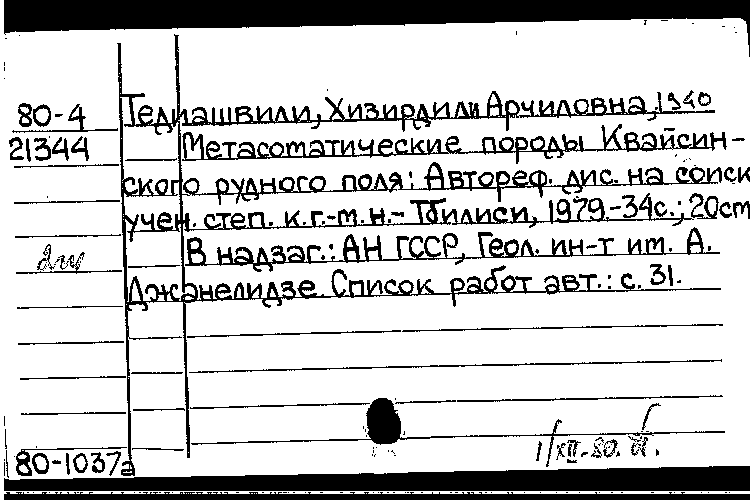 80-4 Тедиашвили, Хизирдили Арчиловна, 1940
21344 Метасоматические породы Квайсин-
ского рудного поля: Автореф. дис. на соиск
учен. степ. к.г.-м.н.- Тбилиси, 1979.-34с.; 20см
В надзаг.: АН ГССР, Геол. ин-т им. А.
Джанелидзе. Список работ авт.: с. 31.
1/XII-80.
80-1037а